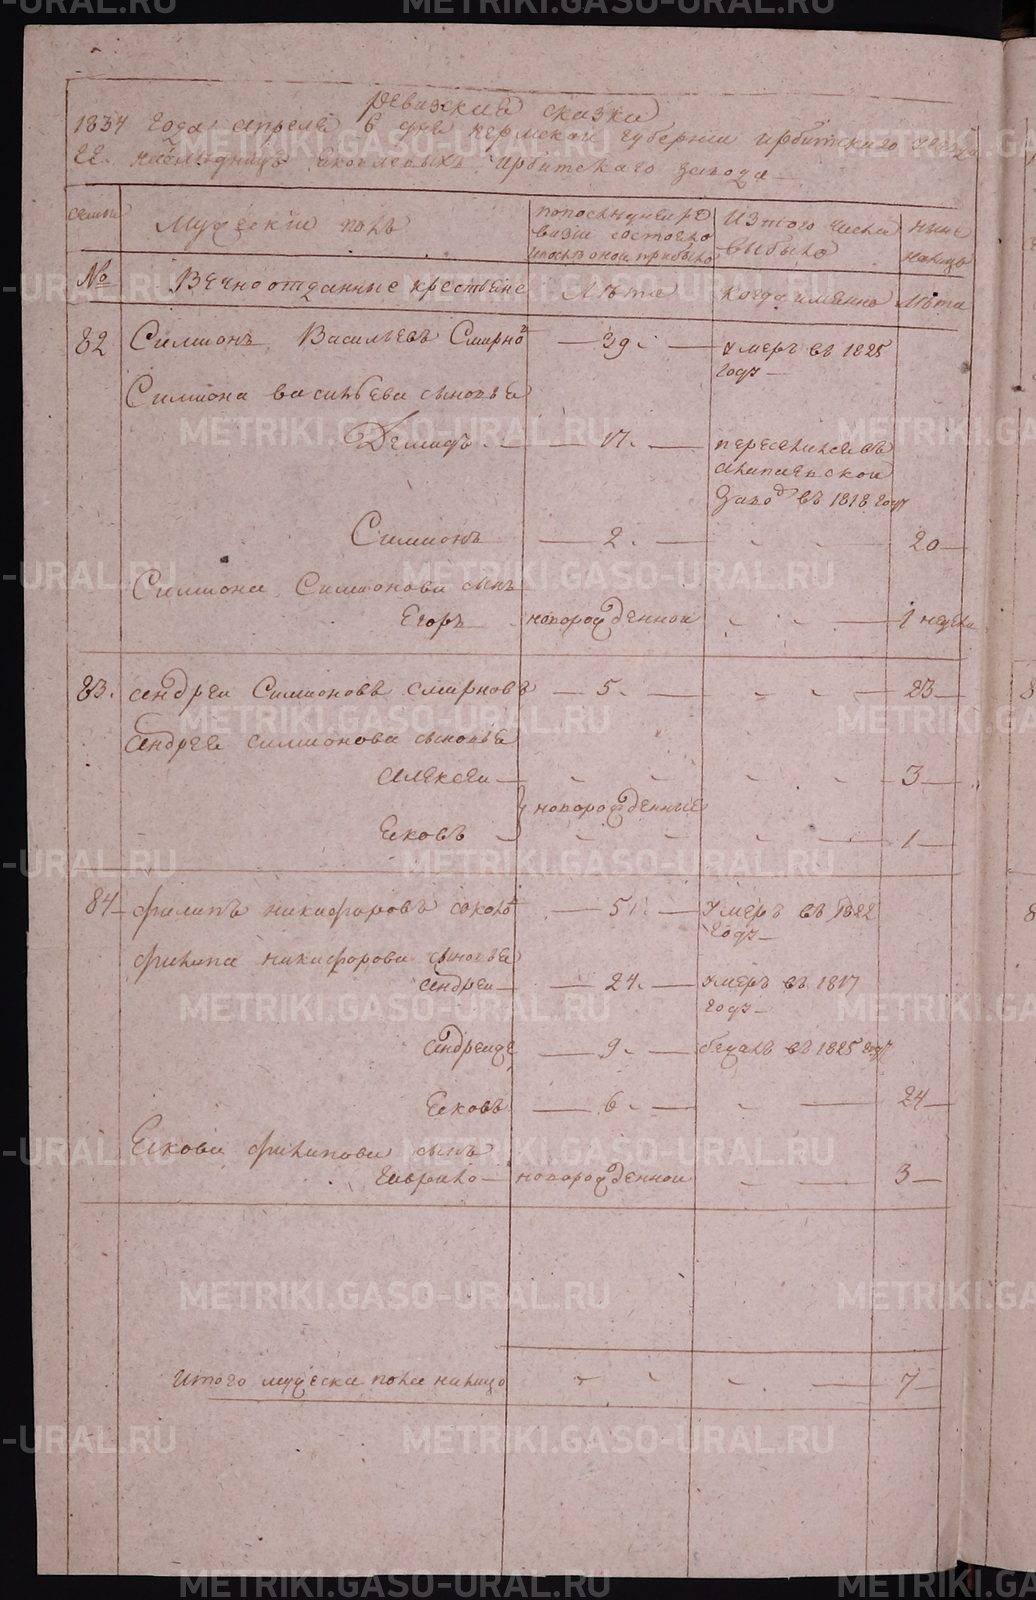 Ревизские сказки
1834 года апреля 6 дня пермской губернии ирбитского уезда
наследницъ яковлевыхъ ирбитскаго завода
семьи
Мужескiй полъ
по последней ре
визiи состояло
и после оной прибыло
Изтого числа
выбыло
ныне
налицо
№
Вечноотданные крестьяне
Лѣта
когда имянно
Лѣта
82 Симионъ Васильевъ Смирно — 39. — умеръ въ 1825
году —
Симиона васильева сыновья
Демидъ — 17. — переселился въ
алапаевской
заводъ въ 1818 году
Симионъ — 2. — 20 —
Симиона Симионова сынъ
Егоръ новорожденной — 1 недели
83. андреи Симионовъ смирновъ — 5. — 23 —
Андрея симионова сыновья
алексеи — 3 —
новорожденные
Яковъ — 1 —
84 — филипъ никифоровъ сокол — 51. — умеръ въ 1822
году —
филипа никифорова сыновья
андреи — — 24. — умеръ въ 1817
году —
Андреиже — 9. — бежалъ въ 1825 году
Яковъ — 6 — 24 —
Якова филипова сынъ
гаврило — новорожденной — 3 —
Итого мужеска пола налицо — 7 —
METRIKI.GASO-URAL.RU